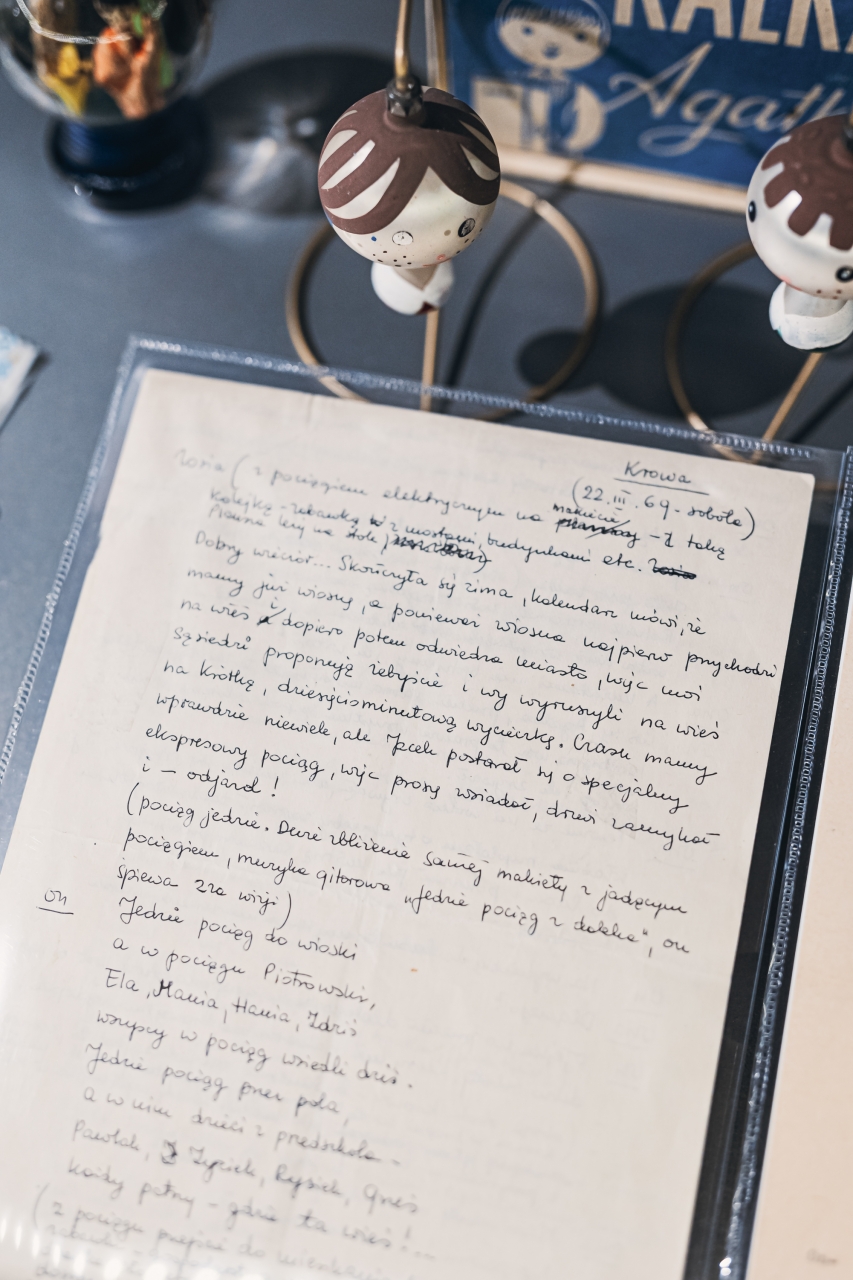 KALKA
Agath
Krowa
(22.III.69-sobota)
Zosia (z pociągiem elektrycznym na makiecie planszy - Z taką
Kolejkę - zabawkę z mostami, budynkami etc. Zosia
na stole
Dobry wieczór... Skończyła się zima, kalendarz mówi, że
mamy już wiosnę, a ponieważ wiosna najpierw przychodzi
na wieś i dopiero potem odwiedza miasto, więc moi
sąsiedzi proponują żebyście i wy wyruszyli na wieś
na krótką, dziesięciominutową wycieczkę. Czasu mamy
wprawdzie niewiele, ale Jacek postarał się o specjalny
ekspresowy pociąg, więc proszę wsiadać, drzwi zamykać
i - odjazd!
(pociąg jedzie. Duże zbliżenie samej makiety z jadącym
pociągiem, muzyka gitarowa „Jedzie pociąg z daleka", on
śpiewa zza wizji)
on
Jedzie pociąg do wioski
a w pociągu Piotrowski,
Ela, Mania, Hania, Zdziś
wszyscy w pociąg wsiedli dziś.
Jedzie pociąg przez pola,
a w nim dzieci z przedszkola -
Pawlak, Zyziek, Rysiek, Grześ
każdy patrzy - gdzie ta wieś!...
(z pociągu przejście do